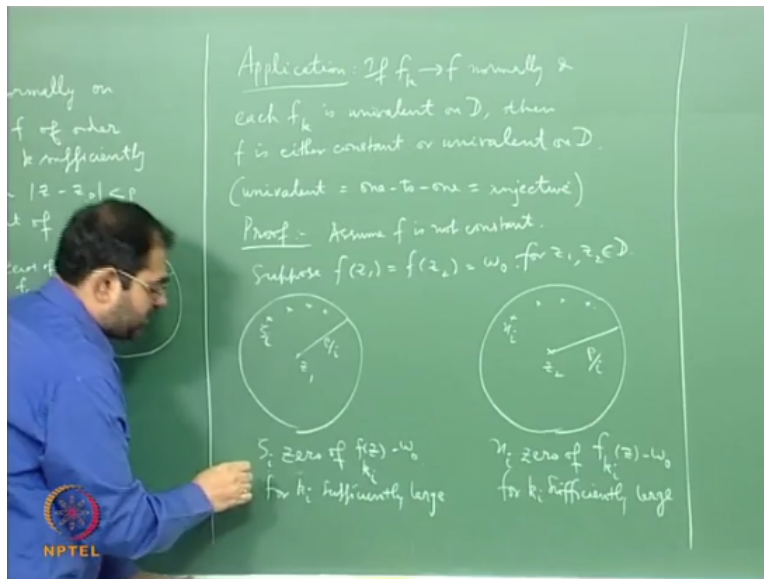 rmally on
f of order
k sufficiently
|z - z₀| < ρ
t of
Application: If fₖ → f normally &
each fₖ is univalent on D, then
f is either constant or univalent on D.
(univalent = one-to-one = injective)
Proof:- Assume f is not constant.
Suppose f(z₁) = f(z₂) = ω₀ for z₁, z₂ ∈ D.
ζᵢ
ρ/i
z₁
ηᵢ
ρ/i
z₂
ζᵢ zero of f_{kᵢ}(z) - ω₀
for kᵢ sufficiently large
ηᵢ zero of f_{kᵢ}(z) - ω₀
for kᵢ sufficiently large
NPTEL